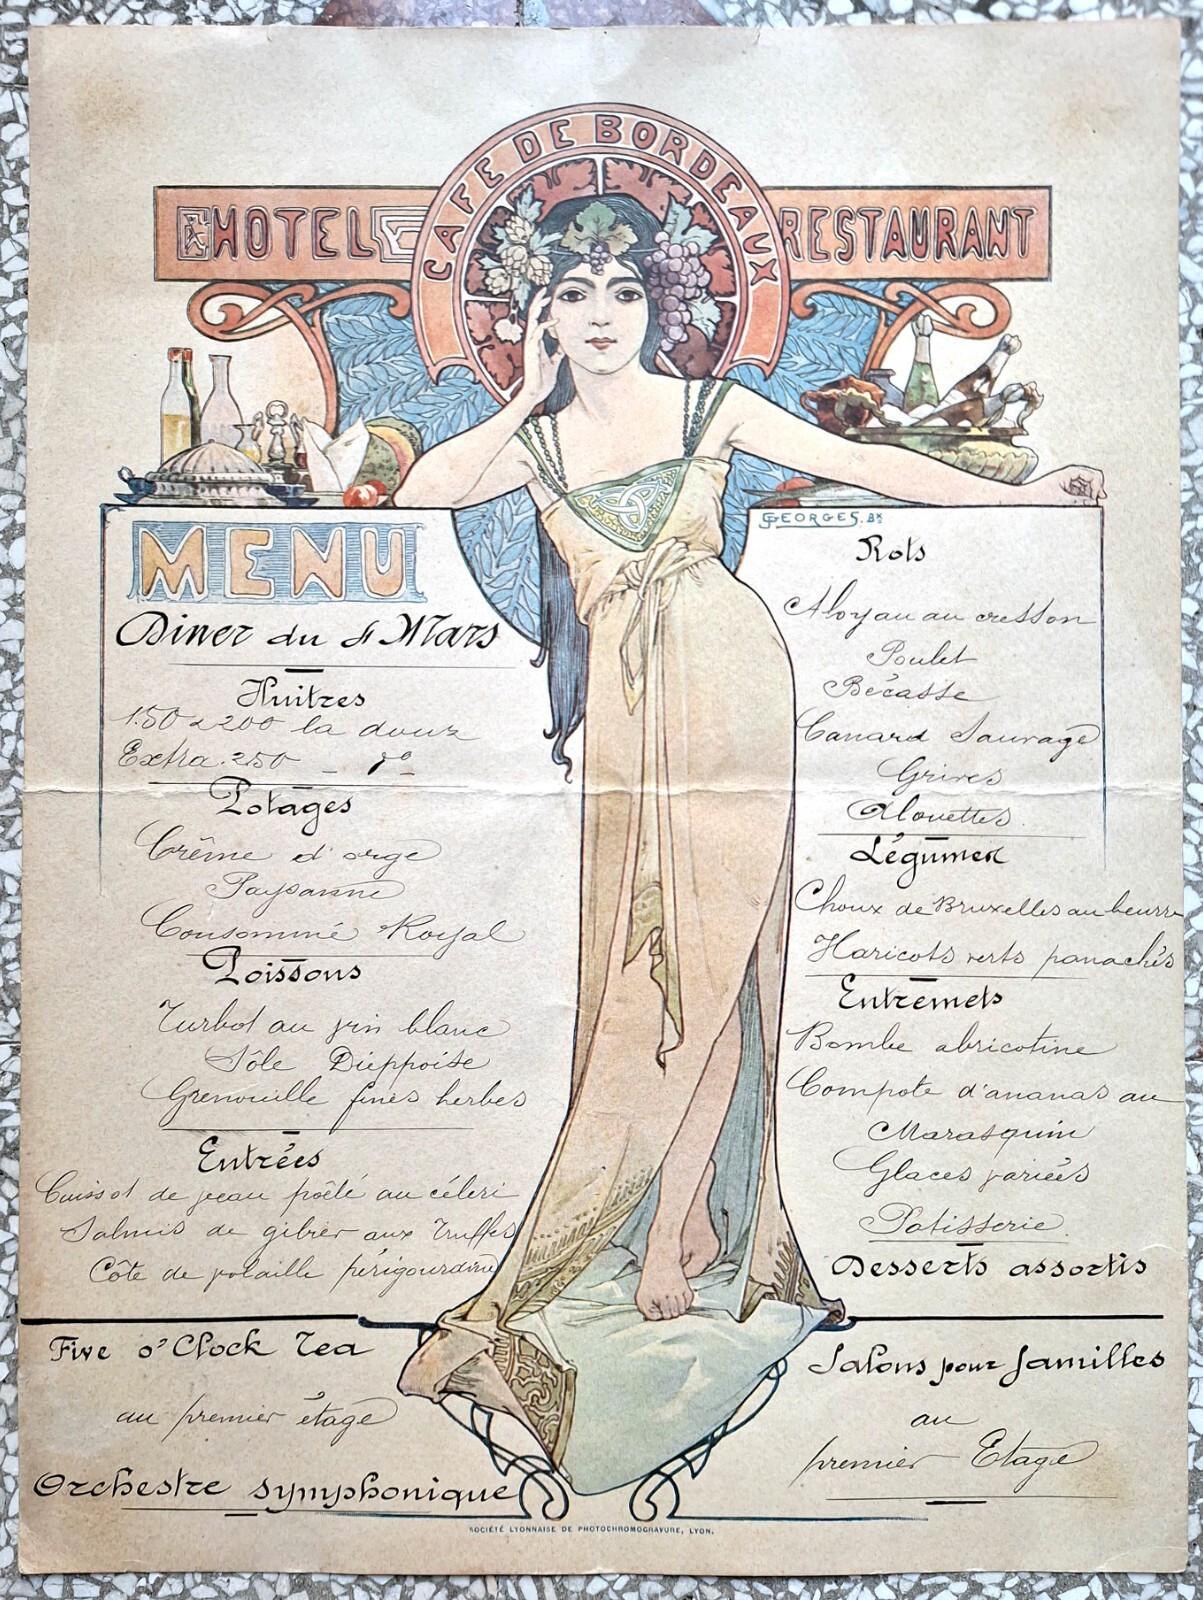 HOTEL
CAFE DE BORDEAUX
RESTAURANT
MENU
Diner du 4 Mars
Huitres
1.50 à 2.00 la douz
Extra. 2.50 - do -
Potages
Crême d'orge
Paysanne
Consommé Royal
Poissons
Turbot au vin blanc
Sôle Dieppoise
Grenouille fines herbes
Entrées
Cuissot de veau poêlé au céleri
Salmis de gibier aux Truffes
Côte de volaille périgourdine
GEORGES. Bx
Rots
Aloyau au cresson
Poulet
Bécasse
Canard Sauvage
Grives
Alouettes
Légumes
Choux de Bruxelles au beurre
Haricots verts panachés
Entremets
Bombe abricotine
Compote d'ananas au
Marasquin
Glaces variées
Patisserie
Desserts assortis
Five o'Clock Tea
au premier étage
Orchestre symphonique
Salons pour familles
au
premier Etage
SOCIÉTÉ LYONNAISE DE PHOTOCHROMOGRAVURE, LYON.